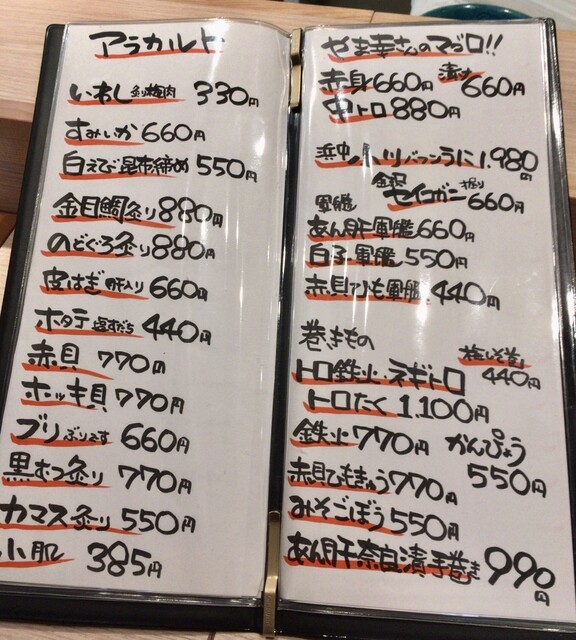 アラカルト
いわし 炙り梅肉 330円
すみいか 660円
白えび昆布締め 550円
金目鯛炙り 880円
のどぐろ炙り 880円
皮はぎ 肝入り 660円
ホタテ 塩すだち 440円
赤貝 770円
ホッキ貝 770円
ブリ ぶりです 660円
黒むつ炙り 770円
カマス炙り 550円
小肌 385円
やま幸さんのマグロ!!
赤身 660円 漬け 660円
中トロ 880円
浜中 うに 1.980円
軍艦 金沢 セイコガニ 握り 660円
あん肝軍艦 660円
白子軍艦 550円
赤貝ひも軍艦 440円
巻きもの
トロ鉄火・ネギトロ
トロたく 1.100円
梅しそ巻 440円
鉄火 770円 かんぴょう 550円
赤貝ひもきゅう 770円
みそごぼう 550円
あん肝奈良漬手巻き 990円